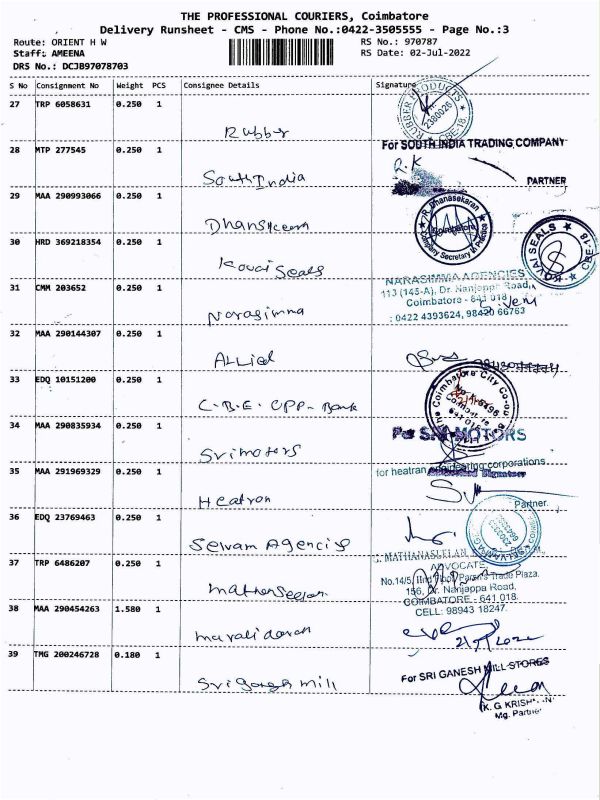 THE PROFESSIONAL COURIERS, Coimbatore
Delivery Runsheet - CMS - Phone No.:0422-3505555 - Page No.:3
Route: ORIENT H W
Staff: AMEENA
DRS No.: DCJB97078703
RS No.: 970787
RS Date: 02-Jul-2022
S No Consignment No Weight PCS Consignee Details Signature
27 TRP 6058631 0.250 1
Rubber
RUBBER PRODUCTS
CBE-18
28 MTP 277545 0.250 1
South India
For SOUTH INDIA TRADING COMPANY
R.K
PARTNER
29 MAA 290993066 0.250 1
R. Dhanasekaran
Coimbatore
Company Secretary in Practice
30 HRD 369218354 0.250 1
Kovai Seals
KOVAI SEALS
CBE-18
31 CMM 203652 0.250 1
Narasimma
NARASIMMA AGENCIES
113 (145-A), Dr. Nanjappa Road,
Coimbatore - 641 018
: 0422 4393624, 98420 66763
32 MAA 290144307 0.250 1
Allied
33 EDQ 10151200 0.250 1
C.B.E. CPP- Bank
The Coimbatore City Co-op
34 MAA 290835934 0.250 1
Srimotors
For SRI MOTORS
35 MAA 291969329 0.250 1
Heatron
for heatran engineering corporations
Authorised Signatory
Partner.
36 EDQ 23769463 0.250 1
Selvam Agencis
37 TRP 6486207 0.250 1
G. MATHANASEELAN
ADVOCATE
No.14/5, IInd Floor, Param's Trade Plaza.
156, Dr. Nanjappa Road,
COIMBATORE - 641 018.
CELL: 98943 18247.
38 MAA 290454263 1.580 1
39 TMG 200246728 0.180 1
Sri Ganesh mill
For SRI GANESH MILL STORES
K. G KRISH
Mg. Partner